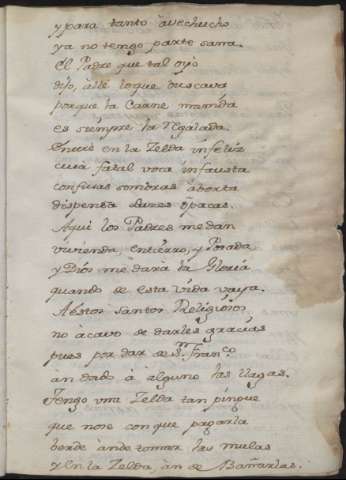 y para tanto avechucho
ya no tengo parte sana.
El Padre que tal oyo
dijo, alle loque buscava
porque la Carne manida
es siempre la regalada.
Entré en la Zelda infeliz
cuia fatal voca infausta
confusas sombras aborta
dispensa luces opacas.
Aqui los Padres me dan
vivienda, entierro, y Posada
y Dios me dará la Gloria
quando de esta vida vaya.
A estos santos Religiosos
no acavo de darles gracias
pues por dar de Sn. Franco.
an dado à alguno las llagas.
Tengo una Zelda tan pingue
que no se con que pagarla
donde ande tomar las mulas
y en la Zelda an de Bañarlas.